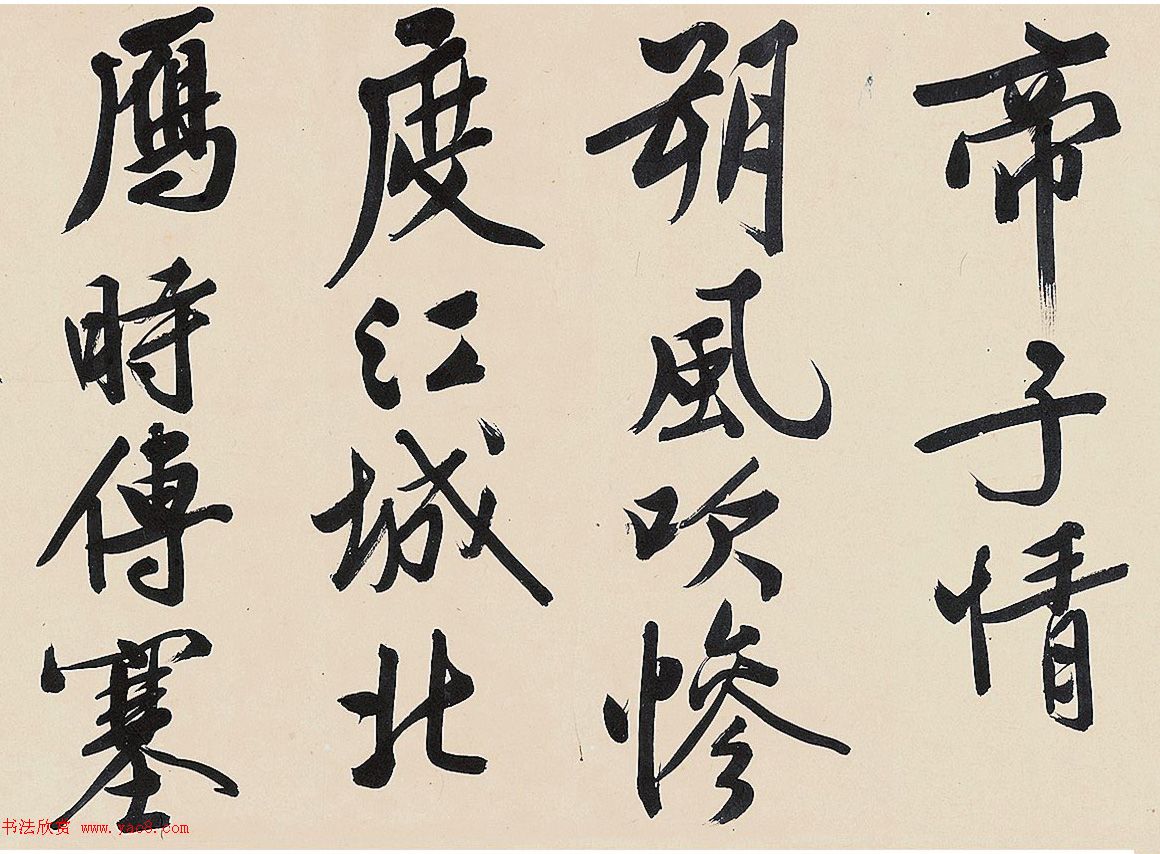 帝子情
朔風吹惨
度江城北
鴈時傳塞
书法欣赏 www.yac8.com